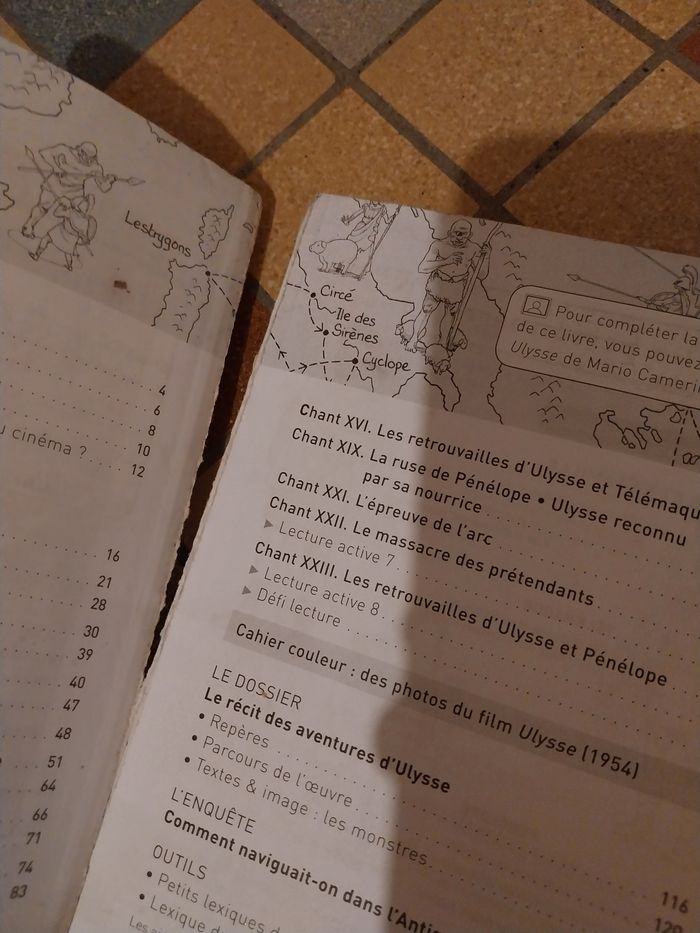 Lestrygons
4
6
8
10
u cinéma ? 12
16
21
28
30
39
40
47
48
51
64
66
71
74
83
Circé
Ile des
Sirènes
Cyclope
Pour compléter la
de ce livre, vous pouvez
Ulysse de Mario Camerin
Chant XVI. Les retrouvailles d'Ulysse et Télémaqu
Chant XIX. La ruse de Pénélope • Ulysse reconnu
par sa nourrice
Chant XXI. L'épreuve de l'arc
Chant XXII. Le massacre des prétendants
▶ Lecture active 7
Chant XXIII. Les retrouvailles d'Ulysse et Pénélope
▶ Lecture active 8
▶ Défi lecture
Cahier couleur : des photos du film Ulysse (1954)
LE DOSSIER
Le récit des aventures d'Ulysse
• Repères
• Parcours de l'œuvre
• Textes & image : les monstres
116
L'ENQUÊTE
120
Comment naviguait-on dans l'Antiq
OUTILS
• Petits lexiques d
• Lexique d